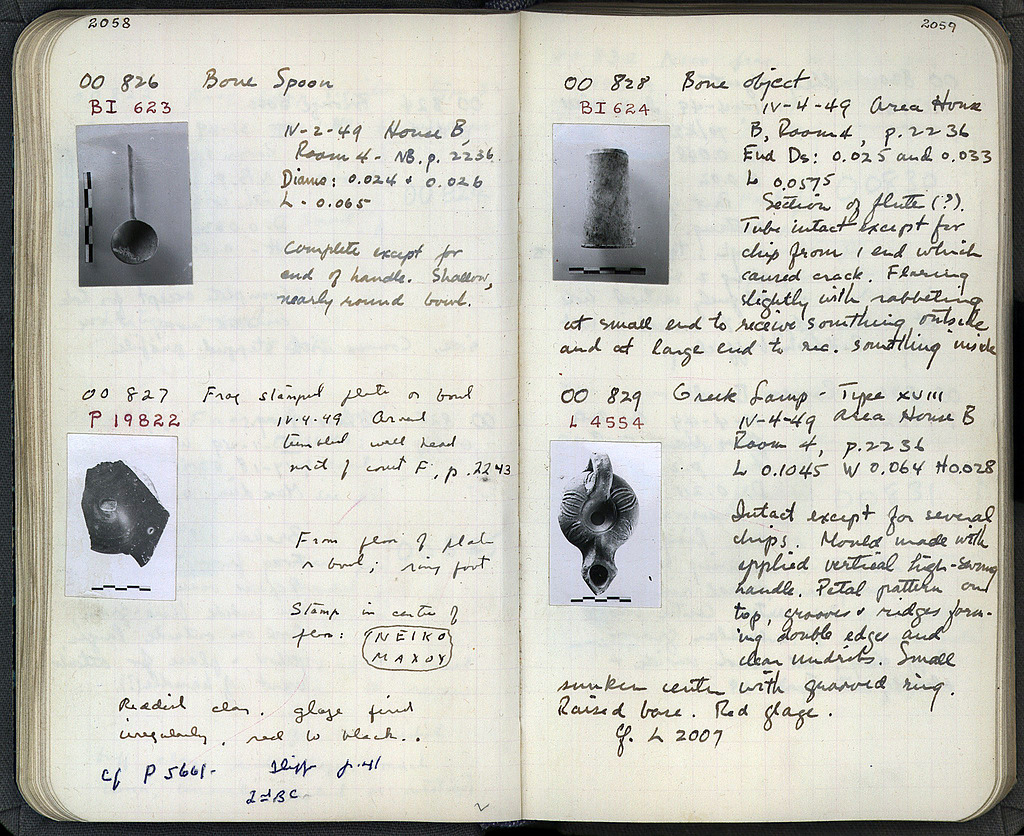 2058
OO 826 Bone Spoon
BI 623
IV-2-49 House B,
Room 4 - NB. p. 2236.
Diams: 0.024 + 0.026
L - 0.065
Complete except for
end of handle. Shallow,
nearly round bowl.
OO 827 Frag stamped plate or bowl
P 19822
IV-4-49
tumbled wall head
of court F, p. 2243
From floor of plate
or bowl; ring foot
Stamp in center of
floor: NEIKO
MAXOY
Reddish clay. glaze fired
irregularly, red to black..
Cf P 5661-
p. 41
2nd BC
2059
OO 828 Bone object
BI 624
IV-4-49 Area House
B, Room 4, p. 2236
End Ds: 0.025 and 0.033
L 0.0575
Section of flute (?).
Tube intact except for
chip from 1 end which
caused crack. Flaring
slightly with rabbeting
at small end to receive something outside
and at large end to rec. something inside
OO 829 Greek Lamp - Type XVIII
L 4554
IV-4-49 Area House B
Room 4, p. 2236
L 0.1045 W 0.064 H 0.028
Intact except for several
chips. Mould made with
applied vertical high-swung
handle. Petal pattern on
top, grooves + ridges form-
ing double edges and
clear midribs. Small
sunken center with grooved ring.
Raised base. Red glaze.
Cf. L 2007